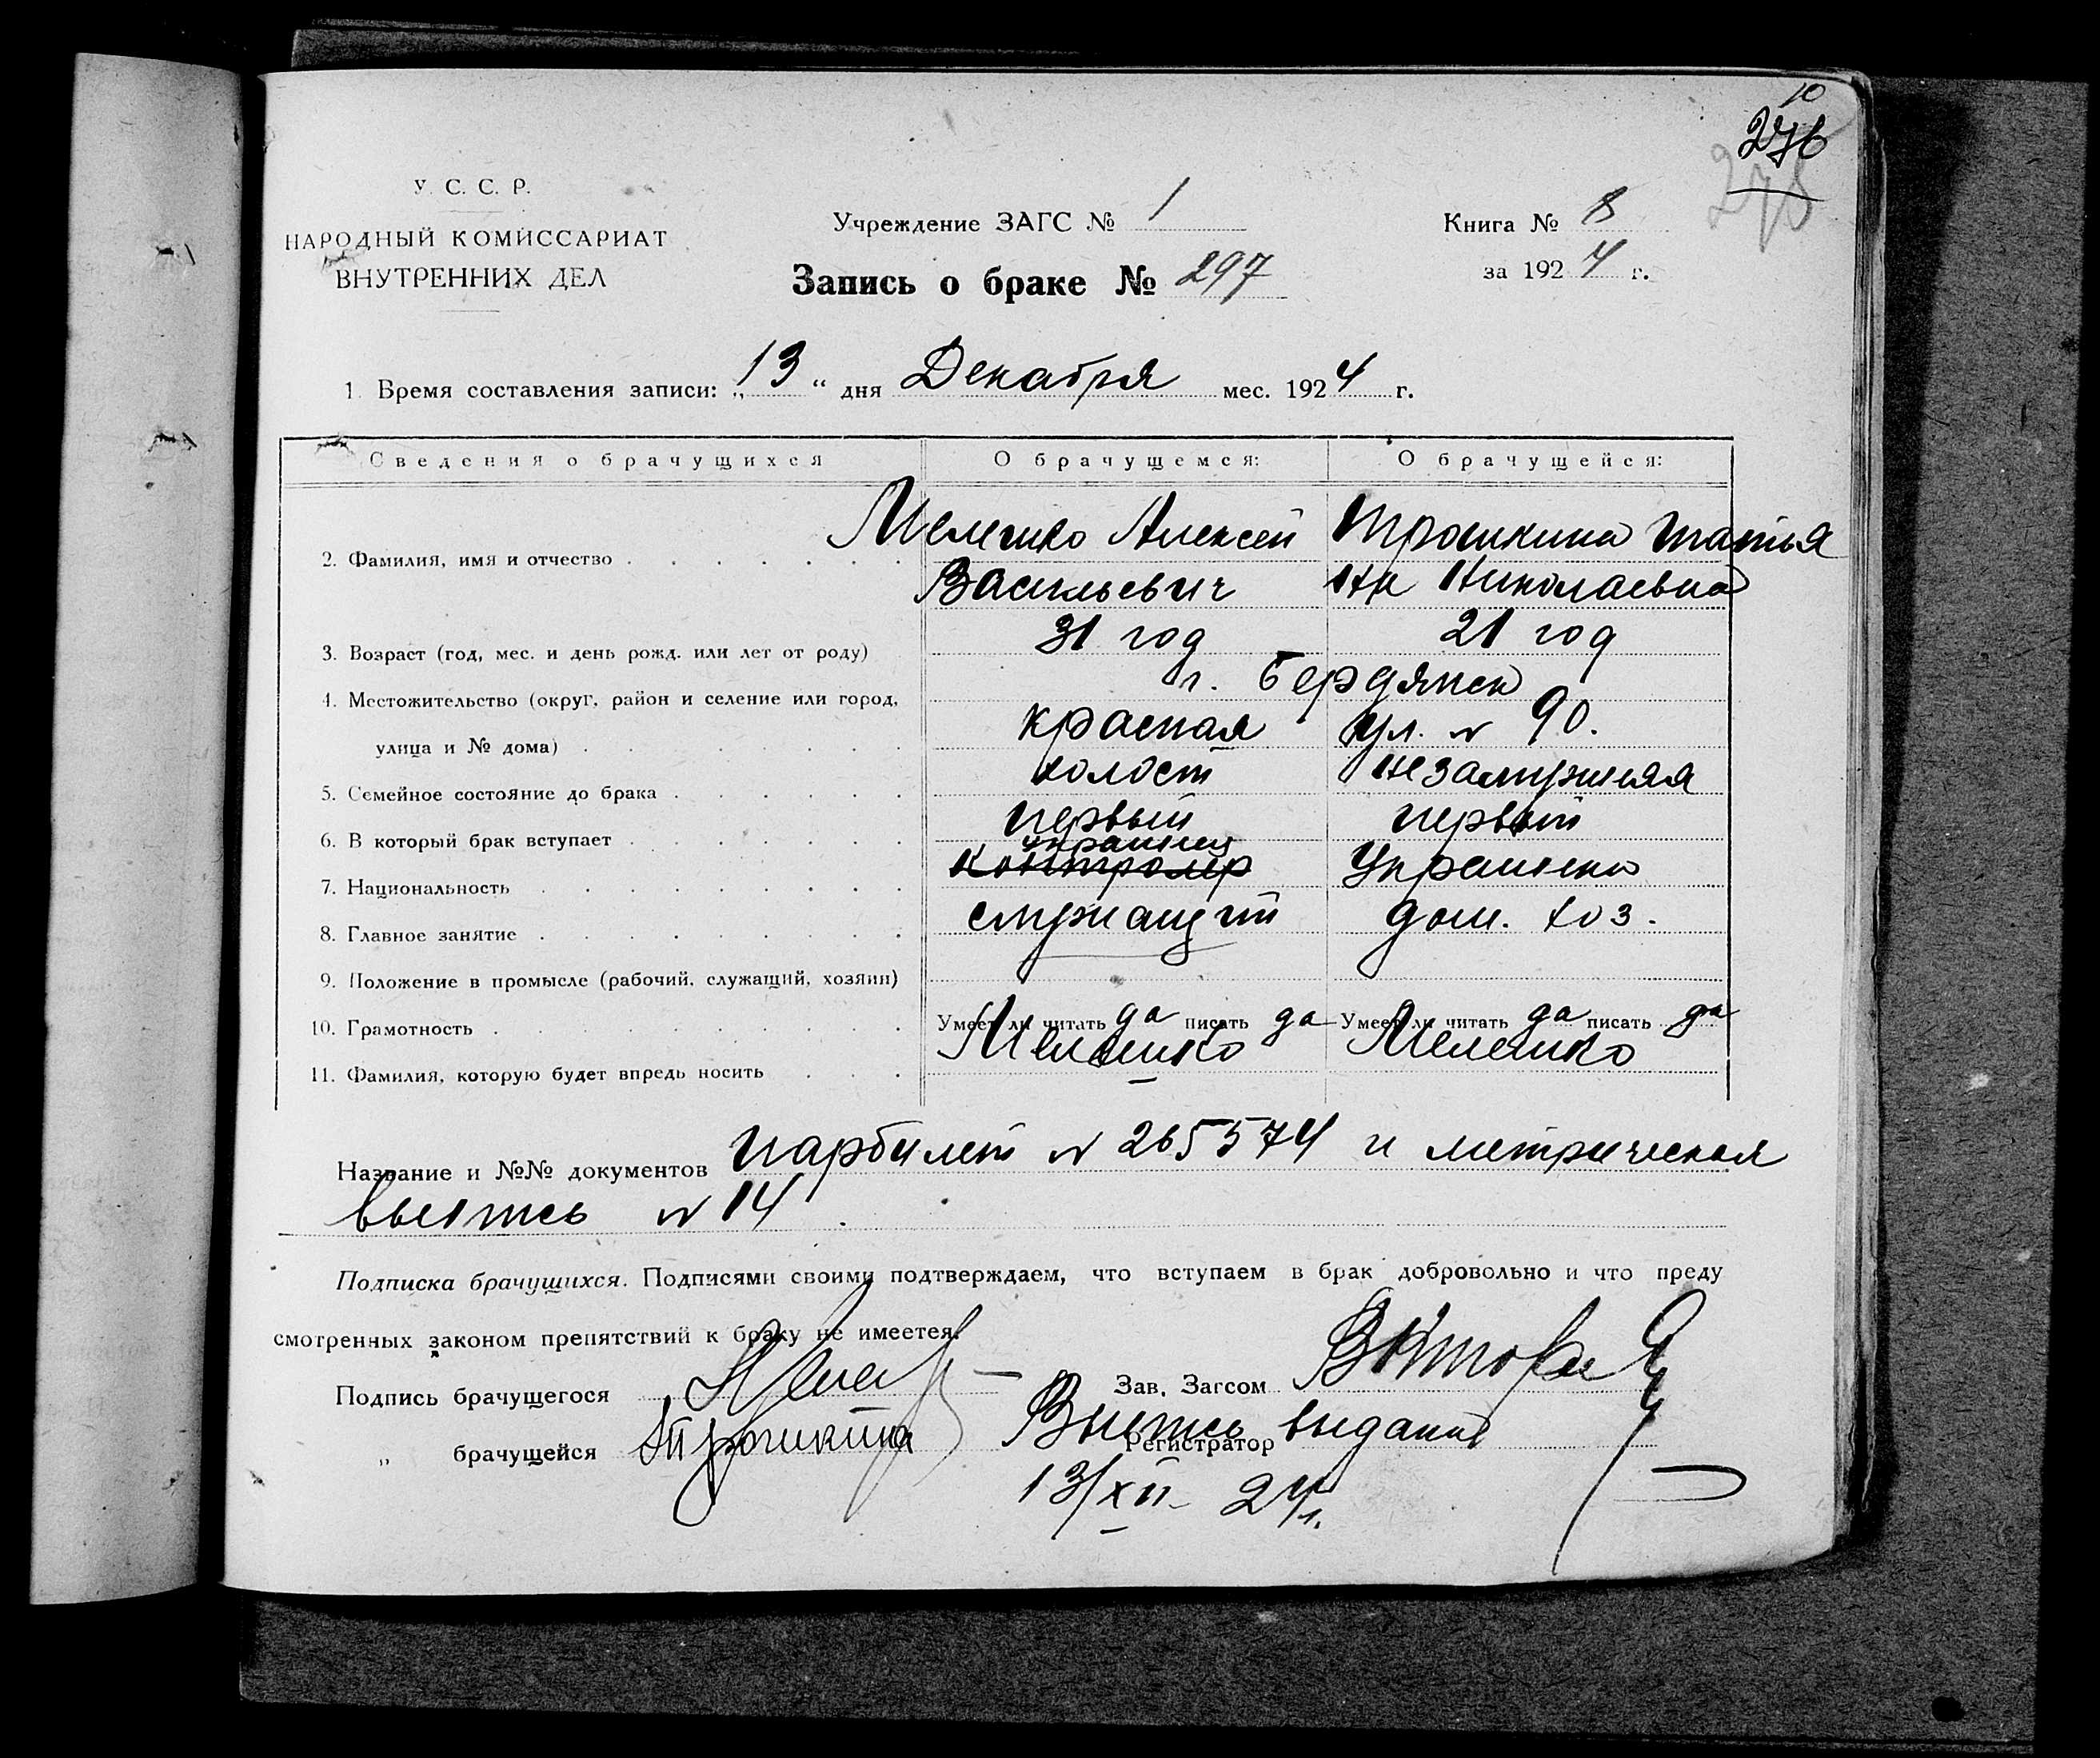 10
276
278
У. С. С. Р.
НАРОДНЫЙ КОМИССАРИАТ
ВНУТРЕННИХ ДЕЛ
Учреждение ЗАГС № 1
Запись о браке № 297
Книга № 8
за 1924 г.
1. Время составления записи: „13“ дня Декабря мес. 1924 г.
Сведения о брачущихся О брачущемся: О брачущейся:
2. Фамилия, имя и отчество Мелешко Алексей Трошкина Татья
Васильевич на Николаевна
3. Возраст (год, мес. и день рожд. или лет от роду) 31 год 21 год
4. Местожительство (округ, район и селение или город, г. Бердянск
улица и № дома) Красная ул. № 90.
5. Семейное состояние до брака холост незамужняя
6. В который брак вступает первый первый
украинец
7. Национальность контролер Украинка
8. Главное занятие служащий дом. хоз.
9. Положение в промысле (рабочий, служащий, хозяин)
10. Грамотность Умеет ли читать да писать да Умеет ли читать да писать да
11. Фамилия, которую будет впредь носить Мелешко Мелешко
Название и №№ документов парбилет № 265574 и метрическая
выпись № 14
Подписка брачущихся. Подписями своими подтверждаем, что вступаем в брак добровольно и что преду
смотренных законом препятствий к браку не имеется.
Подпись брачущегося
Зав. Загсом
„ брачущейся Трошкина
Регистратор
Выпись выдана
13/XII 24 г.